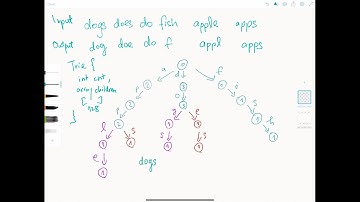 Input dogs does do fish apple apps
Output dog doe do f appl apps
Trie {
int cnt,
array children
[128]
}
0
a d f
2 3 1
p o i
2 3 1
p g e s
2 1 1 1
l s s s h
1 1 1 1 1
e
1
dogs